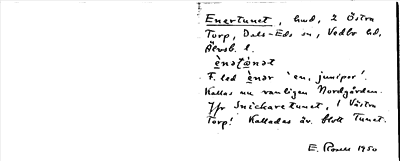 Enertunet, hmd, 2 Östra
Torp, Dals-Eds sn, Vedbo hd,
Älvsb. l.
F. led ènər 'en, juniper'.
Kallas nu vanligen Nordgården.
Jfr Snickaretunet, 1 Västra
Torp! Kallades äv. blott Tunet.
E. Rosell 1950